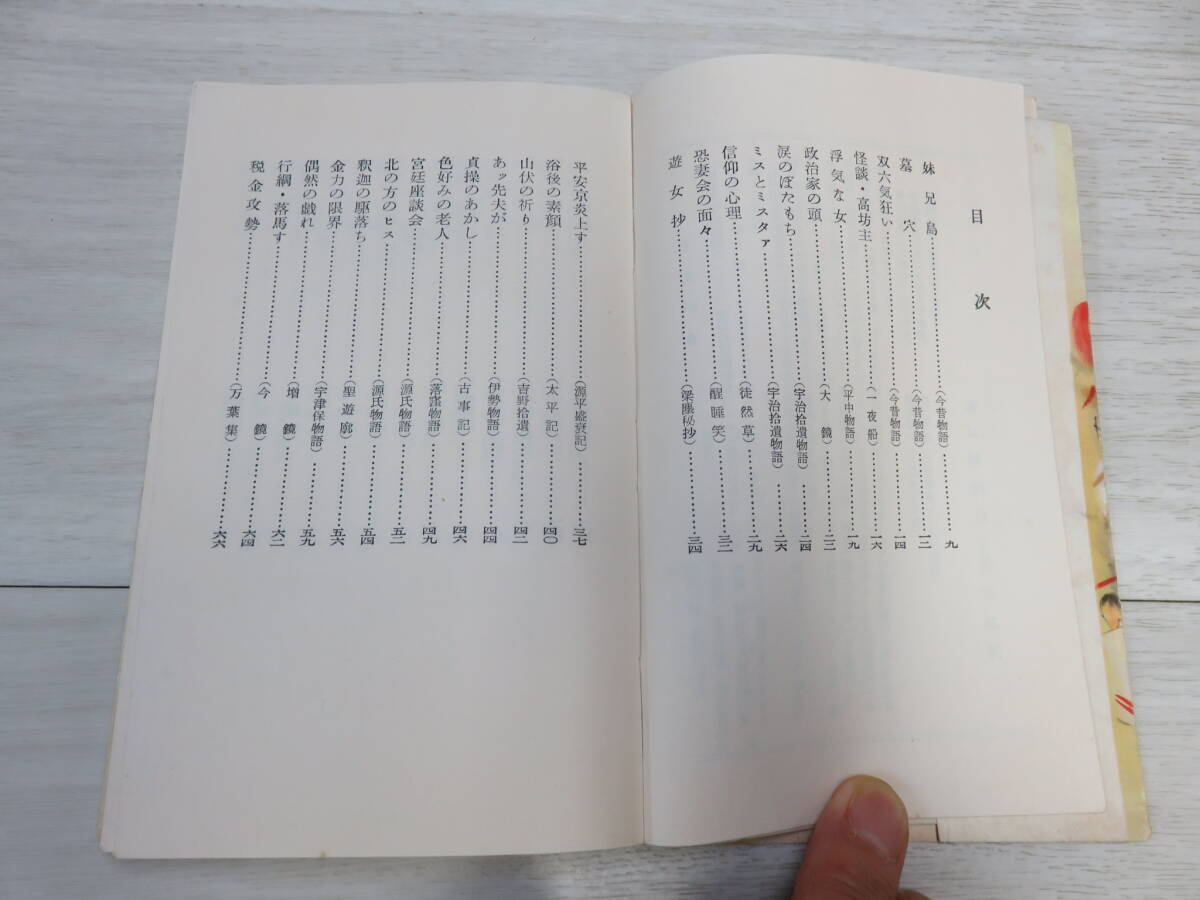 目次
妹兄島…………(今昔物語)…………九
墓穴…………(今昔物語)…………一二
双六気狂い…………(今昔物語)…………一四
怪談・高坊主…………(一夜船)…………一六
浮気な女…………(平中物語)…………一九
政治家の頭…………(大鏡)…………二二
涙のぼたもち…………(宇治拾遺物語)…………二四
ミスとミスタァ…………(宇治拾遺物語)…………二六
信仰の心理…………(徒然草)…………二九
恐妻会の面々…………(醒睡笑)…………三二
遊女抄…………(梁塵秘抄)…………三四
平安京炎上す…………(源平盛衰記)…………三七
浴後の素顔…………(太平記)…………四〇
山伏の祈り…………(吉野拾遺)…………四二
あッ先夫が…………(伊勢物語)…………四四
貞操のあかし…………(古事記)…………四六
色好みの老人…………(落窪物語)…………四九
宮廷座談会…………(源氏物語)…………五二
北の方のヒス…………(源氏物語)…………五四
釈迦の駆落ち…………(聖遊廓)…………五六
金力の限界…………(宇津保物語)…………五九
偶然の戯れ…………(増鏡)…………六二
行綱・落馬す…………(今鏡)…………六四
税金攻勢…………(万葉集)…………六六